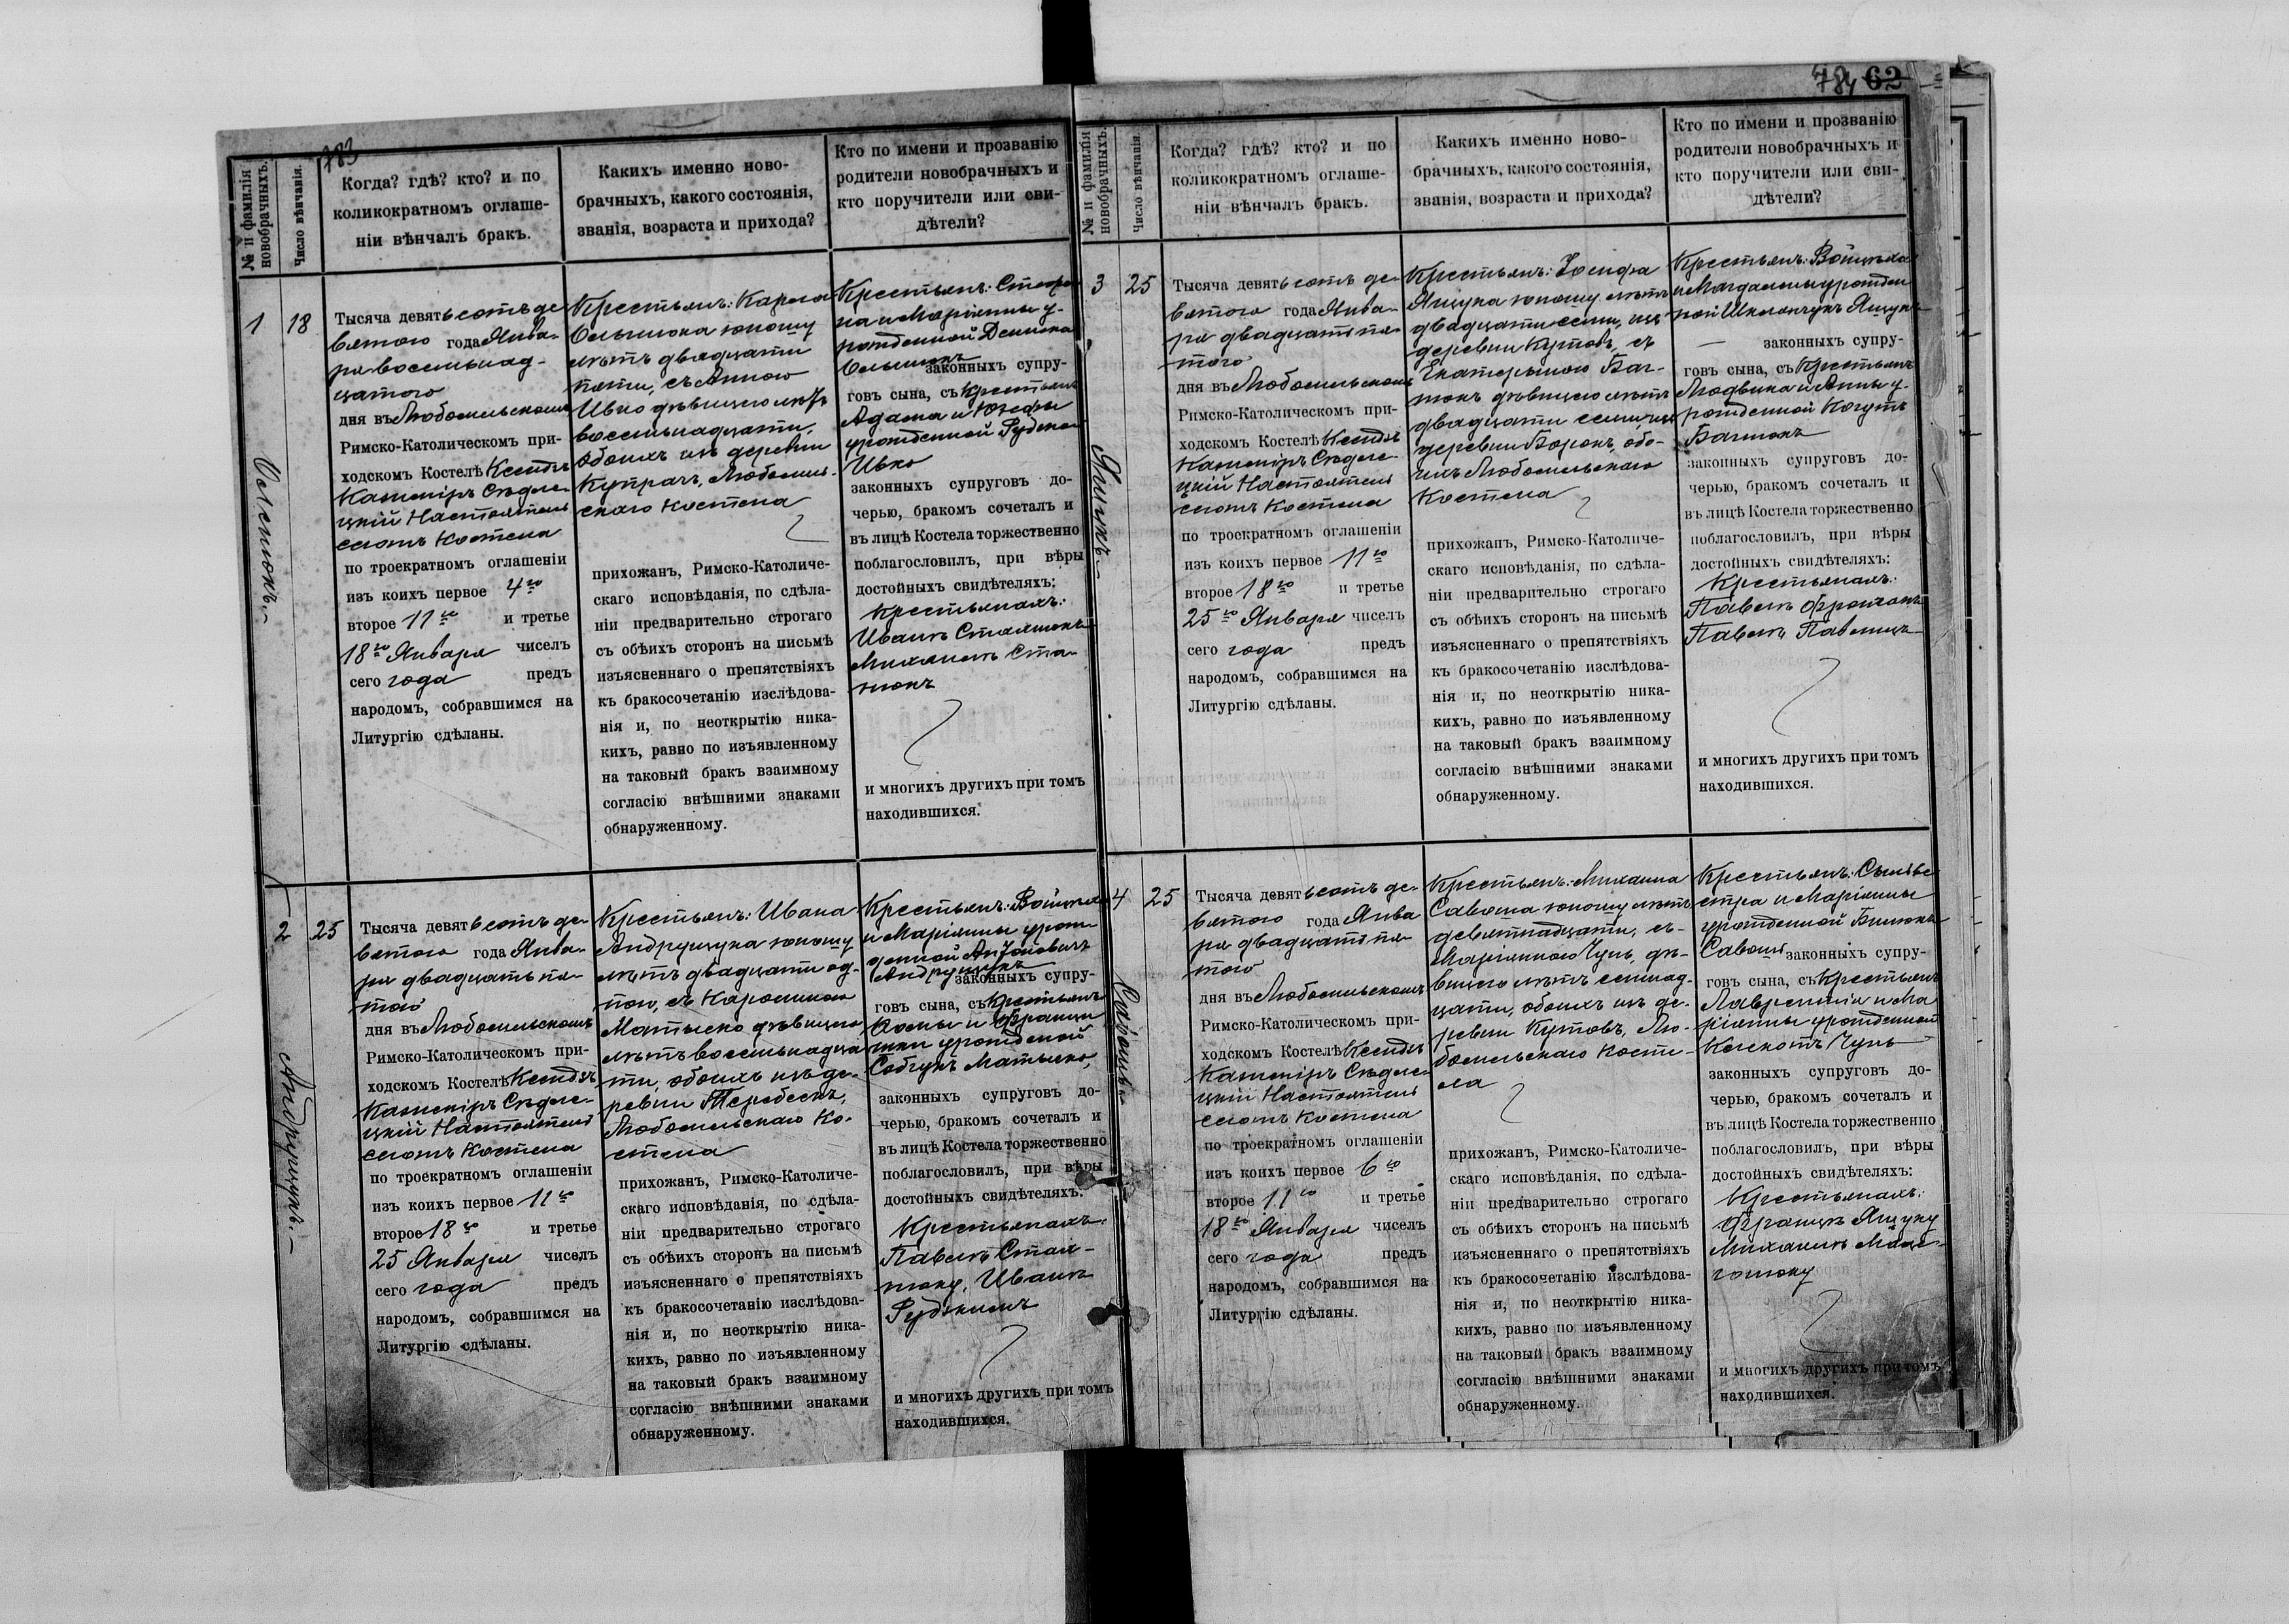 783
№ и фамилія
новобрачныхъ.
Число вѣнчанія.
Когда? гдѣ? кто? и по
коликократномъ оглаше-
ніи вѣнчалъ бракъ.
Какихъ именно ново-
брачныхъ, какого состоянія,
званія, возраста и прихода?
Кто по имени и прозванію
родители новобрачныхъ и
кто поручители или сви-
дѣтели?
1
18
Тысяча девятьсотъ де-
вятого года Янва-
ря восемьнад-
цатого
дня въ Любомльскомъ
Римско-Католическомъ при-
ходскомъ Костелѣ Ксендзъ
Казиміръ Сѣдле-
цкій Настоятель
сіомъ Костела
по троекратномъ оглашеніи
изъ коихъ первое 4го
второе 11го и третье
18го Января чиселъ
сего года предъ
народомъ, собравшимся на
Литургію сдѣланы.
Крестьянъ: Кароля
юношу
лѣтъ двадцати
пяти, съ Анною
Ивко дѣвицею лѣтъ
восемьнадцати,
обоихъ изъ деревни
Любомль-
скаго Костела
прихожанъ, Римско-Католиче-
скаго исповѣданія, по сдѣла-
ніи предварительно строгаго
съ обѣихъ сторонъ на письмѣ
изъясненнаго о препятствіяхъ
къ бракосочетанію изслѣдова-
нія и, по неоткрытію ника-
кихъ, равно по изъявленному
на таковый бракъ взаимному
согласію внѣшними знаками
обнаруженному.
Крестьянъ: Стефа-
на и Маріанны у-
рожденной
законныхъ супру-
говъ сына, съ Крестьянъ
Адама и Юзефы
урожденной
Ивко
законныхъ супруговъ до-
черью, бракомъ сочеталъ и
въ лицѣ Костела торжественно
поблагословилъ, при вѣры
достойныхъ свидѣтеляхъ:
Крестьянахъ:
Иванъ
Михаилъ
и многихъ другихъ при томъ
находившихся.
2
25
Андрущукъ.
Тысяча девятьсотъ де-
вятого года Янва-
ря двадцать пя-
того
дня въ Любомльскомъ
Римско-Католическомъ при-
ходскомъ Костелѣ Ксендзъ
Казиміръ Сѣдле-
цкій Настоятель
сіомъ Костела
по троекратномъ оглашеніи
изъ коихъ первое 11го
второе 18го и третье
25 Января чиселъ
сего года предъ
народомъ, собравшимся на
Литургію сдѣланы.
Крестьянъ: Ивана
Андрущука юношу
лѣтъ двадцати од-
ного, съ Каролиною
Матыско дѣвицею
лѣтъ восемьнадца
ти, обоихъ изъ де-
ревни Теребеск,
Любомльскаго Ко-
стела
прихожанъ, Римско-Католиче-
скаго исповѣданія, по сдѣла-
ніи предварительно строгаго
съ обѣихъ сторонъ на письмѣ
изъясненнаго о препятствіяхъ
къ бракосочетанію изслѣдова-
нія и, по неоткрытію ника-
кихъ, равно по изъявленному
на таковый бракъ взаимному
согласію внѣшними знаками
обнаруженному.
Крестьянъ: Войцѣха
и Маріанны урож-
денной
Андрущукъ
законныхъ супру-
говъ сына, съ Крестьянъ
и Францы
шки урожденной
Матыско,
законныхъ супруговъ до-
черью, бракомъ сочеталъ и
въ лицѣ Костела торжественно
поблагословилъ, при вѣры
достойныхъ свидѣтеляхъ:
Крестьянахъ:
Павелъ
Иванъ
и многихъ другихъ при томъ
находившихся.
784 62
№ и фамилія
новобрачныхъ.
Число вѣнчанія.
Когда? гдѣ? кто? и по
коликократномъ оглаше-
ніи вѣнчалъ бракъ.
Какихъ именно ново-
брачныхъ, какого состоянія,
званія, возраста и прихода?
Кто по имени и прозванію
родители новобрачныхъ и
кто поручители или сви-
дѣтели?
3
25
Ящукъ.
Тысяча девятьсотъ де-
вятого года Янва-
ря двадцать пя-
того
дня въ Любомльскомъ
Римско-Католическомъ при-
ходскомъ Костелѣ Ксендзъ
Казиміръ Сѣдле-
цкій Настоятель
сіомъ Костела
по троекратномъ оглашеніи
изъ коихъ первое 11го
второе 18го и третье
25го Января чиселъ
сего года предъ
народомъ, собравшимся на
Литургію сдѣланы.
Крестьянъ: Іосифа
Ящука юношу лѣтъ
двадцати семи, изъ
деревни Кутовъ, съ
Екатериною Баг-
дѣвицею лѣтъ
двадцати семи изъ
деревни обо-
ихъ Любомльскаго
Костела
прихожанъ, Римско-Католиче-
скаго исповѣданія, по сдѣла-
ніи предварительно строгаго
съ обѣихъ сторонъ на письмѣ
изъясненнаго о препятствіяхъ
къ бракосочетанію изслѣдова-
нія и, по неоткрытію ника-
кихъ, равно по изъявленному
на таковый бракъ взаимному
согласію внѣшними знаками
обнаруженному.
Крестьянъ: Войцѣха
и Магдалены урожден
ной Ящукъ
законныхъ супру-
говъ сына, съ Крестьянъ
Людвика и Анны у-
рожденной Когутъ
законныхъ супруговъ до-
черью, бракомъ сочеталъ и
въ лицѣ Костела торжественно
поблагословилъ, при вѣры
достойныхъ свидѣтеляхъ:
Крестьянахъ:
Павелъ
Павелъ
и многихъ другихъ при томъ
находившихся.
4
25
Тысяча девятьсотъ де-
вятого года Янва
ря двадцать пя-
того
дня въ Любомльскомъ
Римско-Католическомъ при-
ходскомъ Костелѣ Ксендзъ
Казиміръ Сѣдле-
цкій Настоятель
сіомъ Костела
по троекратномъ оглашеніи
изъ коихъ первое 6го
второе 11го и третье
18го Января чиселъ
сего года предъ
народомъ, собравшимся на
Литургію сдѣланы.
Крестьянъ: Михаила
юношу лѣтъ
девятнадцати, съ
Маріанною Чунь, дѣ-
вицею лѣтъ семнад-
цати, обоихъ изъ де-
ревни Кутовъ, Лю-
бомльскаго Косте-
ла
прихожанъ, Римско-Католиче-
скаго исповѣданія, по сдѣла-
ніи предварительно строгаго
съ обѣихъ сторонъ на письмѣ
изъясненнаго о препятствіяхъ
къ бракосочетанію изслѣдова-
нія и, по неоткрытію ника-
кихъ, равно по изъявленному
на таковый бракъ взаимному
согласію внѣшними знаками
обнаруженному.
Крестьянъ: Сильве
стра и Маріанны
урожденной
законныхъ супру-
говъ сына, съ Крестьянъ
Лаврентія и Ма
ріанны урожденной
Чунь
законныхъ супруговъ до-
черью, бракомъ сочеталъ и
въ лицѣ Костела торжественно
поблагословилъ, при вѣры
достойныхъ свидѣтеляхъ:
Крестьянахъ:
Францъ Ящуку
Михаилъ
и многихъ другихъ при томъ
находившихся.